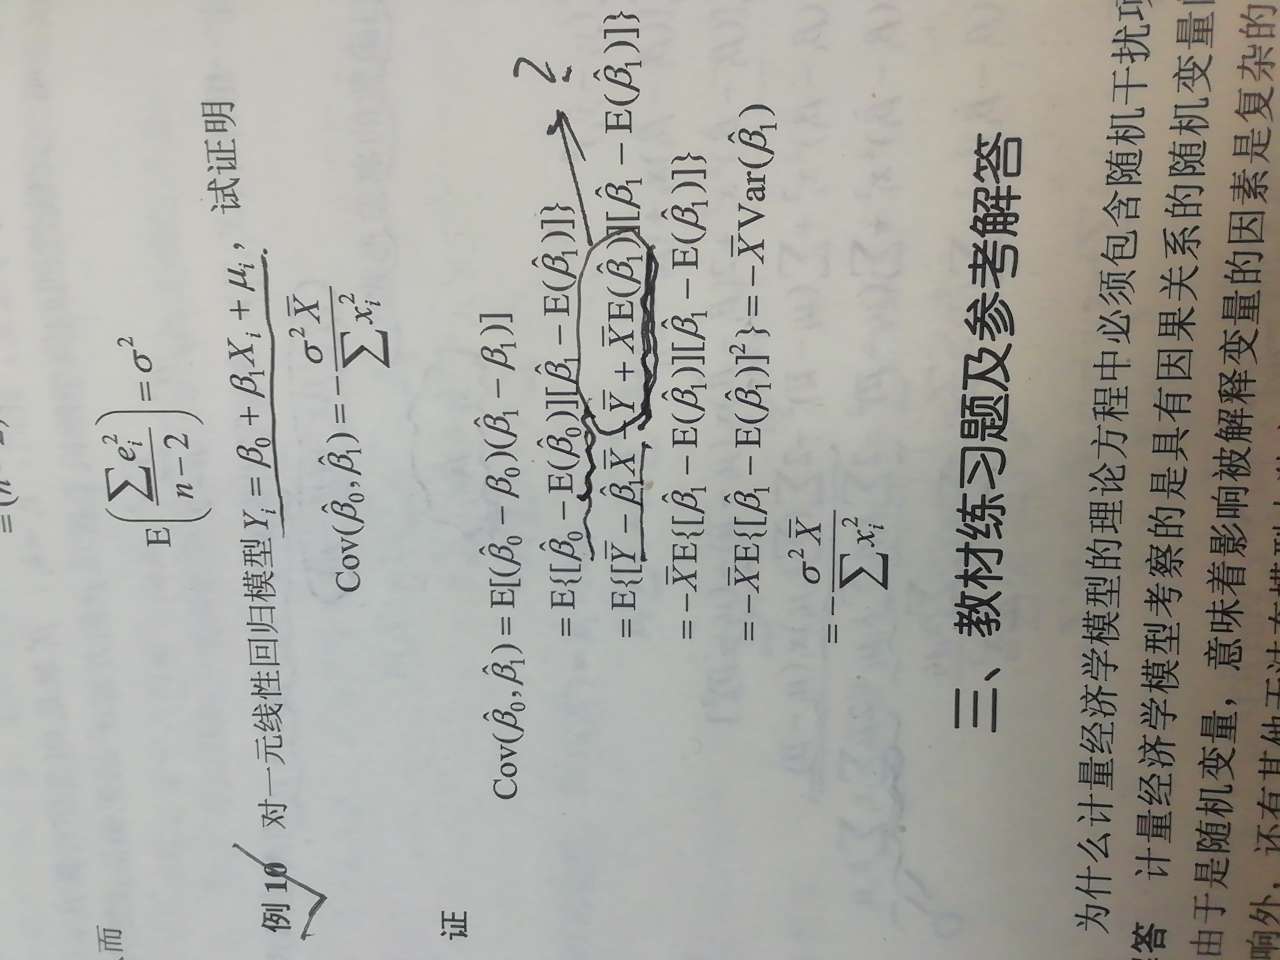 而
E(∑e_i²/(n-2)) = σ²
例 10 对一元线性回归模型Y_i = β_0 + β_1X_i + μ_i，试证明
Cov(β̂_0, β̂_1) = -σ²X̄/∑x_i²
证
Cov(β̂_0, β̂_1) = E[(β̂_0 - β_0)(β̂_1 - β_1)]
= E{[β̂_0 - E(β̂_0)][β̂_1 - E(β̂_1)]}
?
= E{[Ȳ - β̂_1X̄ - Ȳ + X̄E(β̂_1)][β̂_1 - E(β̂_1)]}
= -X̄E{[β̂_1 - E(β̂_1)][β̂_1 - E(β̂_1)]}
= -X̄E{[β̂_1 - E(β̂_1)]²} = -X̄Var(β̂_1)
= -σ²X̄/∑x_i²
三、教材练习题及参考解答
为什么计量经济学模型的理论方程中必须包含随机干扰项
解答 计量经济学模型考察的是具有因果关系的随机变量
由于是随机变量，意味着影响被解释变量的因素是复杂的
响外，还有其他无法在模型